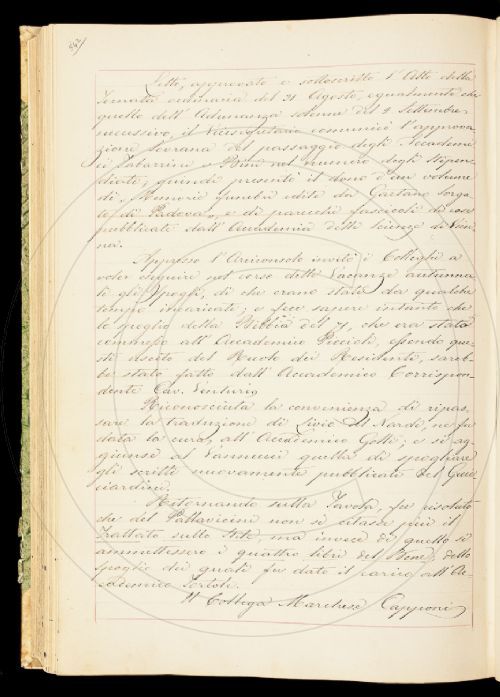 842
Letto, approvato e sottoscritto l'Atto della
Tornata ordinaria del 31 Agosto, egualmente che
quello dell'Adunanza solenne del 9 Settembre
successivo, il Vicesegretario comunicò l'approva-
zione Sovrana del passaggio degli Accademi-
ci Tabarrini e Bini nel numero degli Stipen-
diati, quindi presentò il dono d'un volume
di Memorie funebri edite da Gaetano Sorga-
to di Padova, e di parecchi fascicoli di cose
pubblicate dall'Accademia delle Scienze di Vien-
na.
Appresso l'Arciconsolo invitò i Colleghi a
voler eseguire nel corso delle Vacanze autunna-
li gli Spogli, di che erano stati da qualche
tempo incaricati, e fece sapere intanto che
lo spoglio della Bibbia del 71, che era stato
commesso all'Accademico Piccioli, essendo que-
sti uscito del Ruolo dei Residenti, sareb-
be stato fatto dall'Accademico Corrispon-
dente Cav. Venturi.
Riconosciuta la convenienza di ripas-
sare la traduzione di Livio del Nardi, ne fu
data la cura all'Accademico Gotti; e si ag-
giunse al Vannucci quella di spogliare
gli scritti nuovamente pubblicati del Guic-
ciardini.
Ritornando sulla Tavola, fu risoluto
che del Pallavicini non si citasse più il
Trattato sullo Stile, ma invece di quello si
ammettessero i quattro libri del Bene, dello
spoglio dei quali fu dato il carico all'Ac-
cademico Tortoli.
Il Collega Marchese Capponi